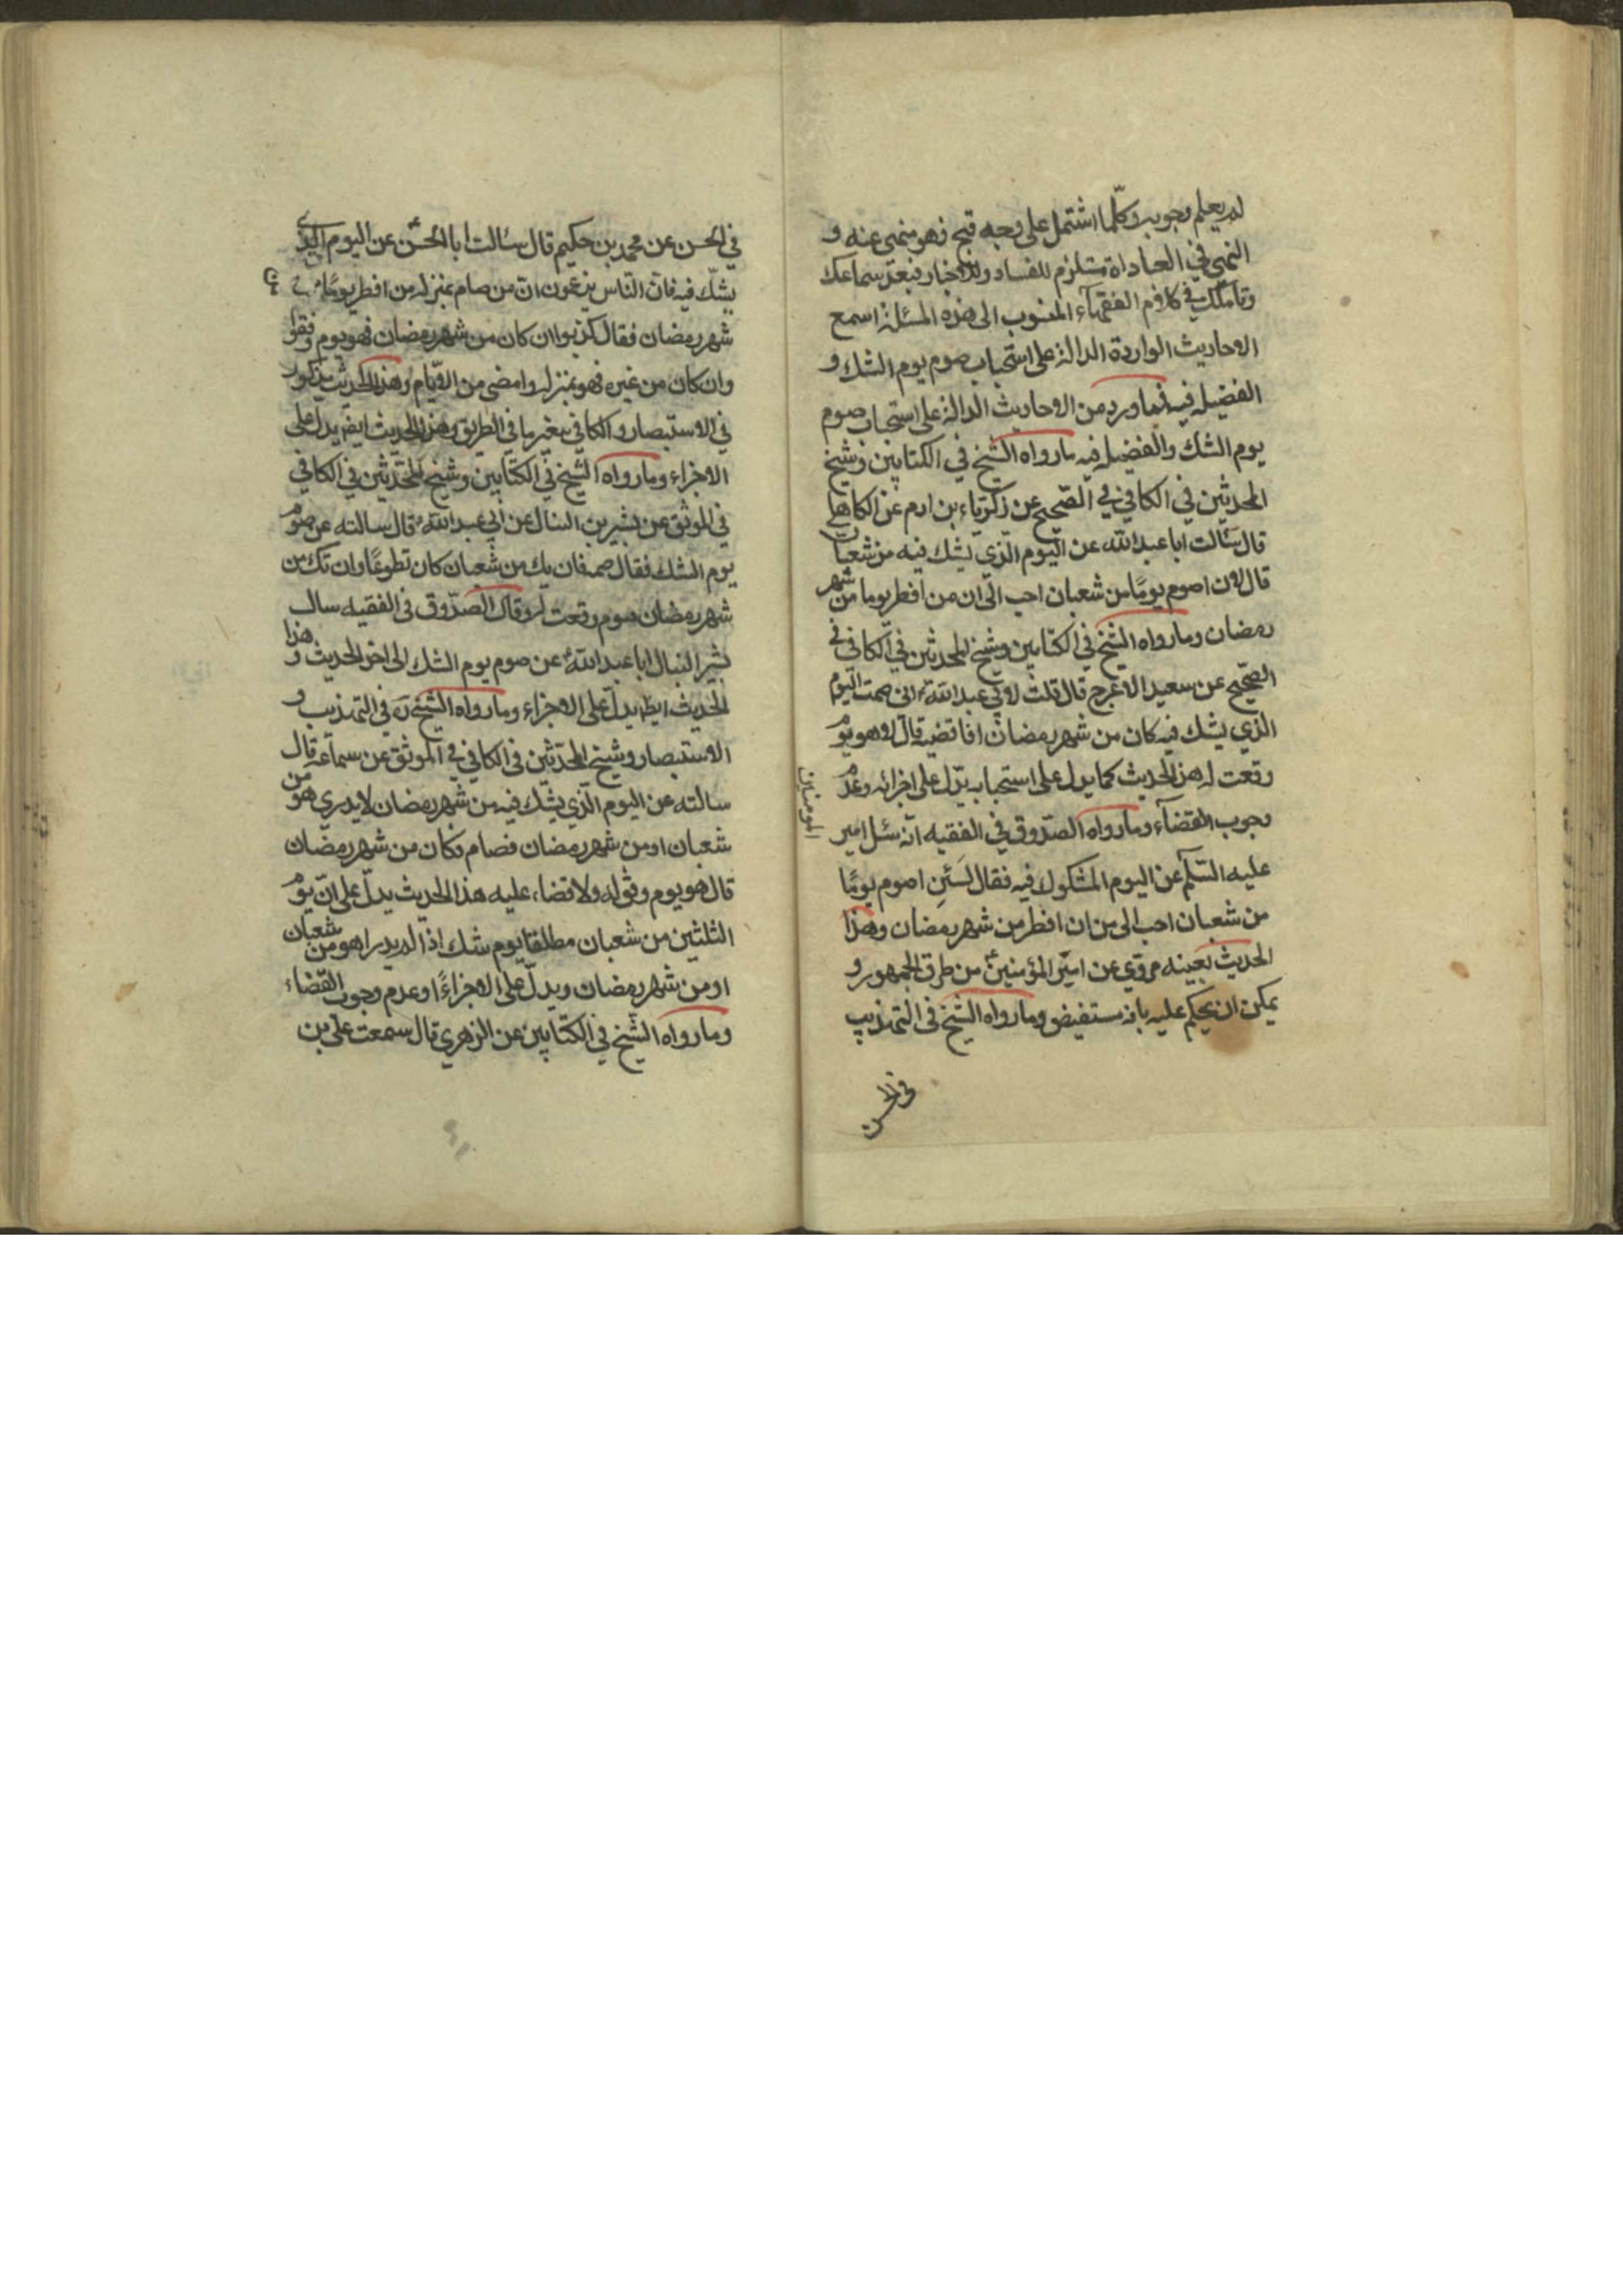 لم يعلم وجوبه وكلّما اشتمل على وجه قبح فهو منهى عنه و
النهي في العبادات مستلزم للفساد وللاخبار فبعد سماعك
وتأملك في كلام الفقهآء المنسوب الى هذه المسئلة اسمع
الاحاديث الواردة الدالة على استحباب صوم يوم الشك و
الفضيلة فيه فما ورد من الاحاديث الدالة على استحباب صوم
يوم الشك والفضيلة فيه ما رواه الشيخ في الكتابين وشيخ
المحدثين في الكافي في الصّحيح عن زكرّياء بن ادم عن الكاهلي
قال سَالت ابا عبد الله عن اليوم الّذي يشك فيه من شعبان
قال لان اصوم يومًا من شعبان احب الىّ ان من افطر يوما من شهر
رمضان وما رواه الشيخ في الكتابين وشيخ المحدثين في الكافي في
الصّحيح عن سعيد الاعرج قال قلت لابي عبد الله ع انى صمت اليوم
الذي يشك فيه كان من شهر رمضان افاقضيه قال لا هو يوم
وفقت له هذا الحديث كما يدل على استحبابه يدّل على اجزائه وعدم
وجوب القضآء وما رواه الصدّوق في الفقيه انّه سئل امير
المومنين
عليه السّلم عن اليوم المشكوك فيه فقال لَئِن اصوم يومًا
من شعبان احب الى من ان افطر من شهر رمضان وهذا
الحديث بعينه مروّي عن امير المؤمنين ع من طرق الجمهور و
يمكن ان يحكم عليه بانه مستفيض وما رواه الشيخ في التهذيب
في الحسن
في الحسن عن محمد بن حكيم قال سالت ابا الحسن ع عن اليوم الّذي
يشكّ فيه فانّ النّاس يزعمون انّ من صام بمنزلة من افطر يومًا من
شهر رمضان فقال كذبوا ان كان من شهر رمضان فهو يوم وفقو
وان كان من غيره فهو بمنزلة ما مضى من الايّام وهذا الحديث مذكور
في الاستبصار والكافي بتغيير ما في الطريق وهذا الحديث ايضً يدل على
الاجزاء وما رواه الشيخ في الكتابين وشيخ المحدّثين في الكافي
في الموثق عن بشير بن النبال عن ابي عبد الله ع قال سالته عن صوم
يوم الشك فقال صمه فان يك من شعبان كان تطوعًا وان تك من
شهر رمضان صوم وفقت له وقال الصدّوق فى الفقيه سال
بشير النبال ابا عبد الله ع عن صوم يوم الشك الى اخر الحديث و هذا
الحديث ايضا يدلّ على الاجزاء وما رواه الشيخ ره في التهذيب و
الاستبصار وشيخ المحدّثين فى الكافي في الموثق عن سماعة قال
سالته عن اليوم الّذي يشك فيه من شهر رمضان لا يدري هو من
شعبان او من شهر رمضان فصام فكان من شهر رمضان
قال هو يوم وفق له ولا قضاء عليه هذا الحديث يدلّ على انّ يوم
الثلثين من شعبان مطلقا يوم شك اذا لم يدر اهو من شعبان
او من شهر رمضان ويدلّ على الاجزاء او عدم وجوب القضاء
وما رواه الشيخ في الكتابين عن الزهري قال سمعت علي بن